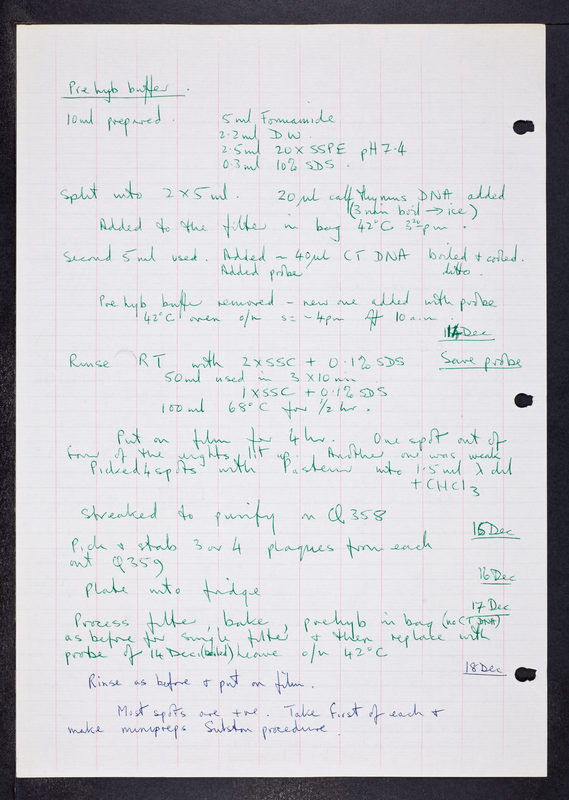 Prehyb buffer.
10ml prepared. 5ml Formamide
2.2ml D.W.
2.5ml 20xSSPE pH7.4
0.3ml 10% SDS.
Split into 2x5ml. 20µl calf thymus DNA added
(3 min boil → ice)
Added to the filter in bag 42°C 3²⁰pm.
Second 5ml used. Added ~ 40µl CT DNA boiled + cooled.
Added probe ditto.
Prehyb buffer removed - new one added with probe
42°C oven o/n s= ~4pm ff 10am.
14Dec
Rinse RT with 2xSSC + 0.1% SDS Save probe
50ml used in 3x10min
1xSSC + 0.1% SDS
100ml 68°C for ½ hr.
Put on film for 4hr. One spot out of
four of the lit up. Another one was weak
Picked 4 spots with Pasteur into 1.5ml λ dil
+ CHCl₃
Streaked to purify on Q358
15Dec
Pick + stab 3 or 4 plaques from each
out Q359
16Dec
Plate into fridge
17Dec
Process filter, bake, prehyb in bag (no CT DNA)
as before for single filter + then replace with
probe of 14Dec (boiled) Leave o/n 42°C
18Dec
Rinse as before + put on film.
Most spots are +ve. Take first of each +
make minipreps procedure.